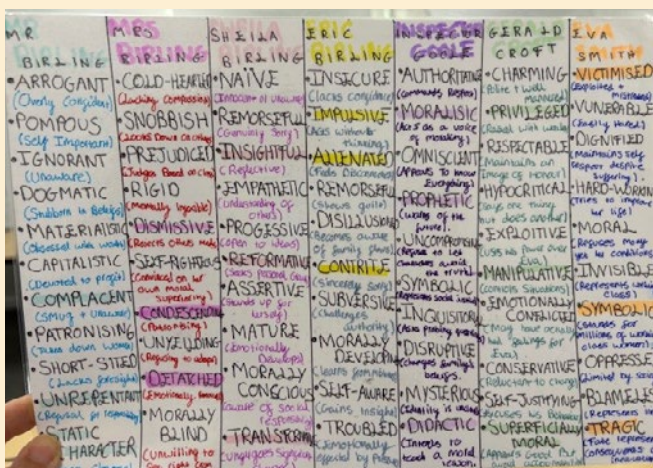 MR.
BIRLING
•ARROGANT
(Overly Confident)
•POMPOUS
(Self Important)
•IGNORANT
(Unaware)
•DOGMATIC
(Stubborn in Beliefs)
•MATERIALISTIC
(Obsessed with wealth)
•CAPITALISTIC
(Devoted to profit)
•COMPLACENT
(SMUG + Unaware)
•PATRONISING
(Talks down
•SHORT-SITED
(Lacks foresight)
•UNREPENTANT
•STATIC
CHARACTER
MRS
BIRLING
•COLD-HEARTED
(Lacking compassion)
•SNOBBISH
(Looks Down on others)
•PREJUDICED
(Judges Based on class)
•RIGID
(Mentally
•DISMISSIVE
(Rejects others
•SELF-RIGHTEOUS
(Convinced of her
own moral
superiority)
•CONDESCENDING
(Patronising)
•UNYEILDING
(Refusing to adapt)
•DETATCHED
(Emotionally
•MORALLY
BLIND
(Unwilling to
SHEILA
BIRLING
•NAÏVE
(Innocent or Unaware)
•REMORSEFUL
(Genuinely Sorry)
•INSIGHTFUL
(Reflective)
•EMPATHETIC
(Understanding of
others)
•PROGESSIVE
(Open to ideas)
•REFORMATIVE
(Seeks
•ASSERTIVE
(Stands up for
herself)
•MATURE
(Emotionally
Develops)
•MORALLY
CONSCIOUS
(aware of social
responsibility)
•TRANSFORM
ERIC
BIRLING
•INSECURE
(lacks confidence)
•IMPULSIVE
(Acts without
thinking)
•ALIENATED
(Feels
•REMORSEFUL
(Shows guilt)
•DISILLUSIONED
(Becomes aware
of family flaws)
•CONTRITE
(Sincerely sorry)
•SUBVERSIVE
(Challenges
authority)
•MORALLY
DEVELOPIN
(Learns from
•SELF-AWARE
(Gains Insight)
•TROUBLED
(Emotionally
effected by
INSPECTOR
GOOLE
•AUTHORITATIVE
(Commands Respect)
•MORALISTIC
(Acts as a voice
of morality)
•OMNISCIENT
(Appears to know
Everything)
•PROPHETIC
(Warns of the
future)
•UNCOMPROMISING
(Refuse to let
the truth)
•SYMBOLIC
(Represents social
•INQUISITORY
(Asks
•DISRUPTIVE
(Changes family's
beliefs)
•MYSTERIOUS
•DIDACTIC
(Intends to
teach a moral
lesson)
GERALD
CROFT
•CHARMING
(Polite + well
mannered
•PRIVILEGED
(Raised with wealth)
•RESPECTABLE
(Maintains an
Image of Honour)
•HYPOCRITICAL
(Says one thing
but does another)
•EXPLOITIVE
(uses his power over
Eva)
•MANIPULATIVE
(Controls Situations)
•EMOTIONALLY
CONFLICTED
(May have actually
had feelings for
Eva)
•CONSERVATIVE
(Reluctant to change)
•SELF-JUSTIFYING
(Excuses his Behaviour)
•SUPERFICIALLY
MORAL
(Appears Good But
EVA
SMITH
•VICTIMISED
(Exploited +
•VUNERABLE
(Easily Harmed)
•DIGNIFIED
(Maintains self
respect despite
suffering)
•HARD-WORKING
(Tries to improve
her life)
•MORAL
(Refuses money
•INVISIBLE
(Represents working
class)
•SYMBOLIC
(Stands for
millions of working
class workers)
•OPPRESSED
(Limited by
•BLAMELESS
(Represents
•TRAGIC